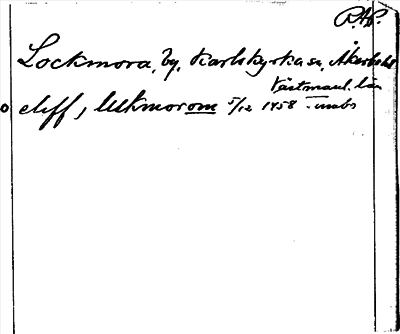 R.A.P.
Lockmora, by, Karlskyrka sn, Åkerbo hd
Västmanl. län
eliff, lukmorom 5/12 1458